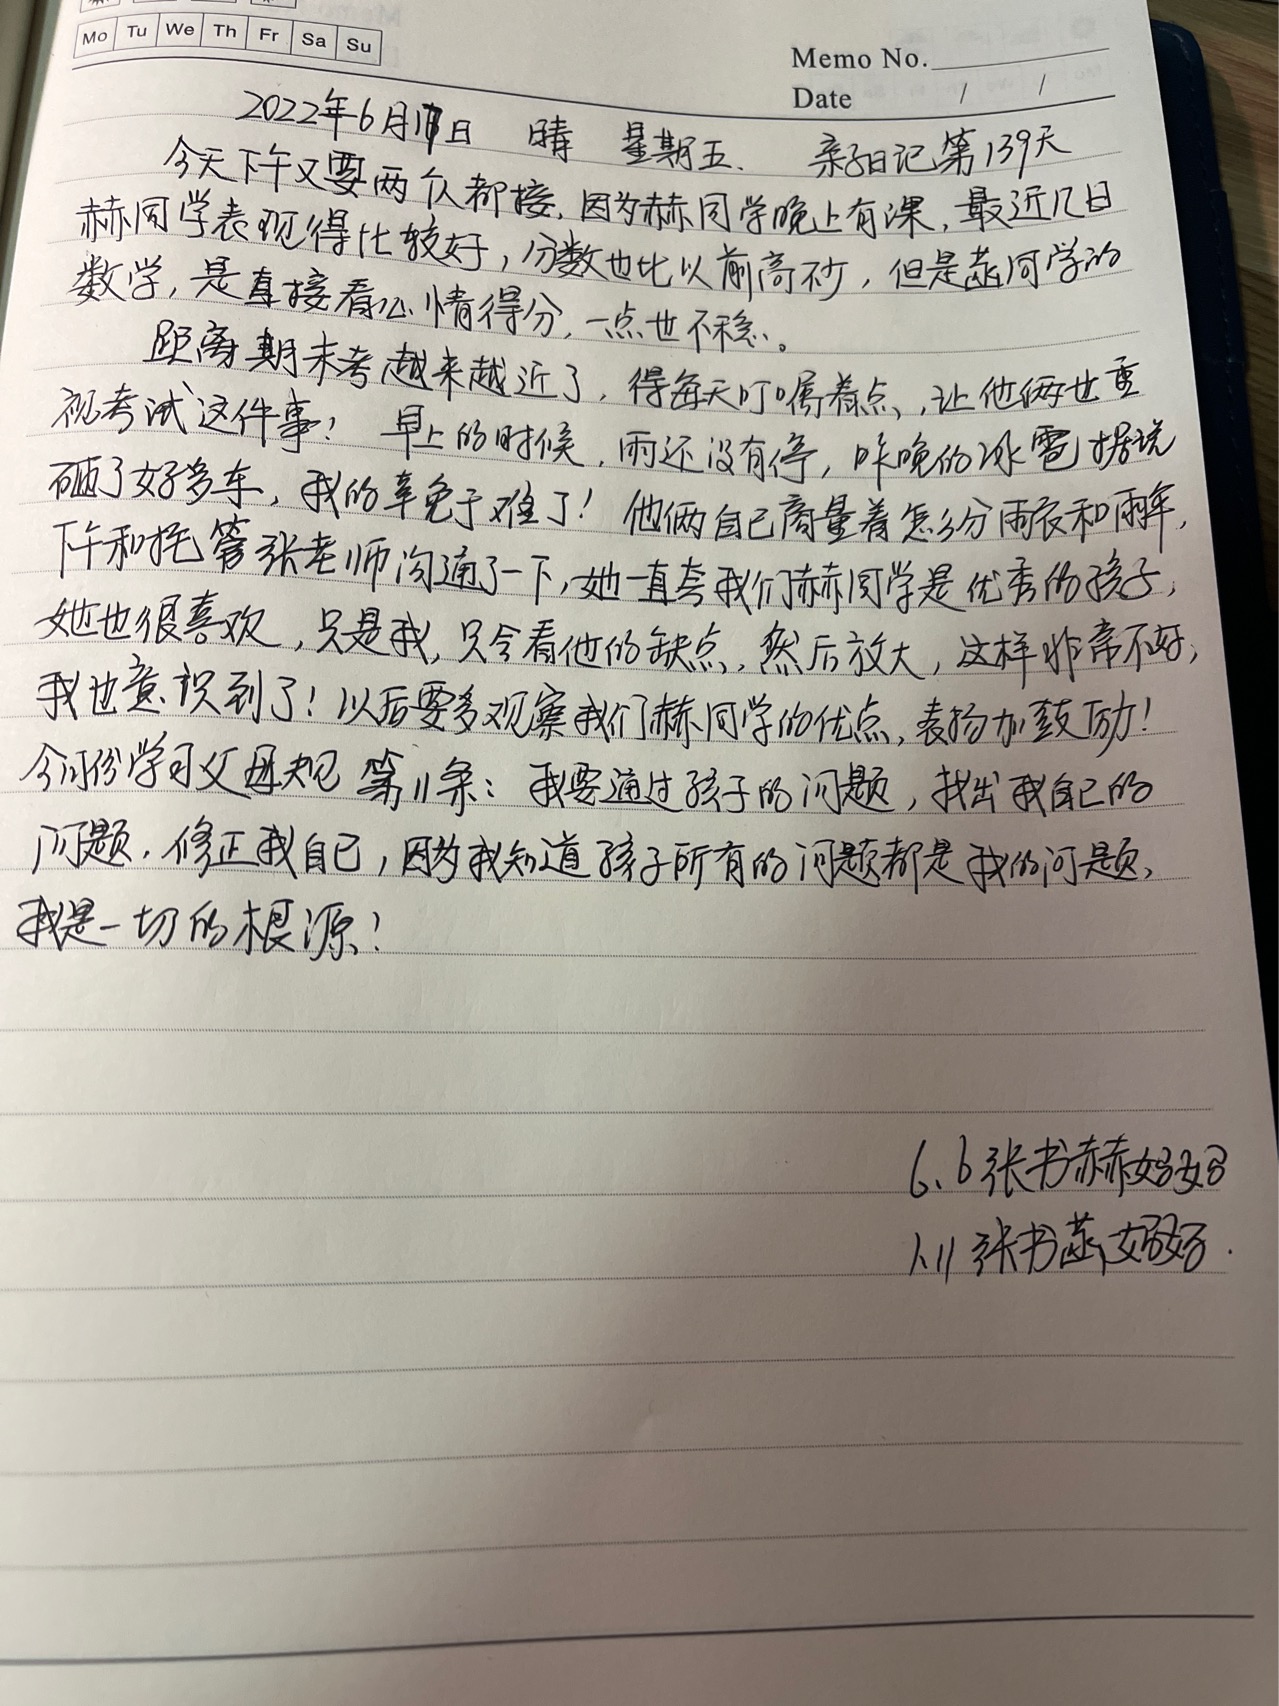 Mo Tu We Th Fr Sa Su
Memo No.
Date / /
2022年6月17日 晴 星期五. 亲子日记第139天
今天下午又要两个都接,因为赫同学晚上有课,最近几日
赫同学表现得比较好,分数也比以前高不少,但是菡同学的
数学,是直接看心情得分,一点也不稳。
距离期末考越来越近了,得每天叮嘱着点,让他俩也重
视考试这件事!早上的时候,雨还没有停,昨晚的冰雹据说
砸了好多车,我的幸免于难了!他俩自己商量着怎么分雨衣和雨伞,
下午和托管张老师沟通了一下,她一直夸我们赫同学是优秀的孩子,
她也很喜欢,只是我,只会看他的缺点,然后放大,这样非常不好,
我也意识到了!以后要多观察我们赫同学的优点,表扬加鼓励!
今日份学习父母规 第11条:我要通过孩子的问题,找出我自己的
问题,修正我自己,因为我知道孩子所有的问题都是我的问题,
我是一切的根源!
6.6张书赫妈妈
1.11张书菡妈妈.